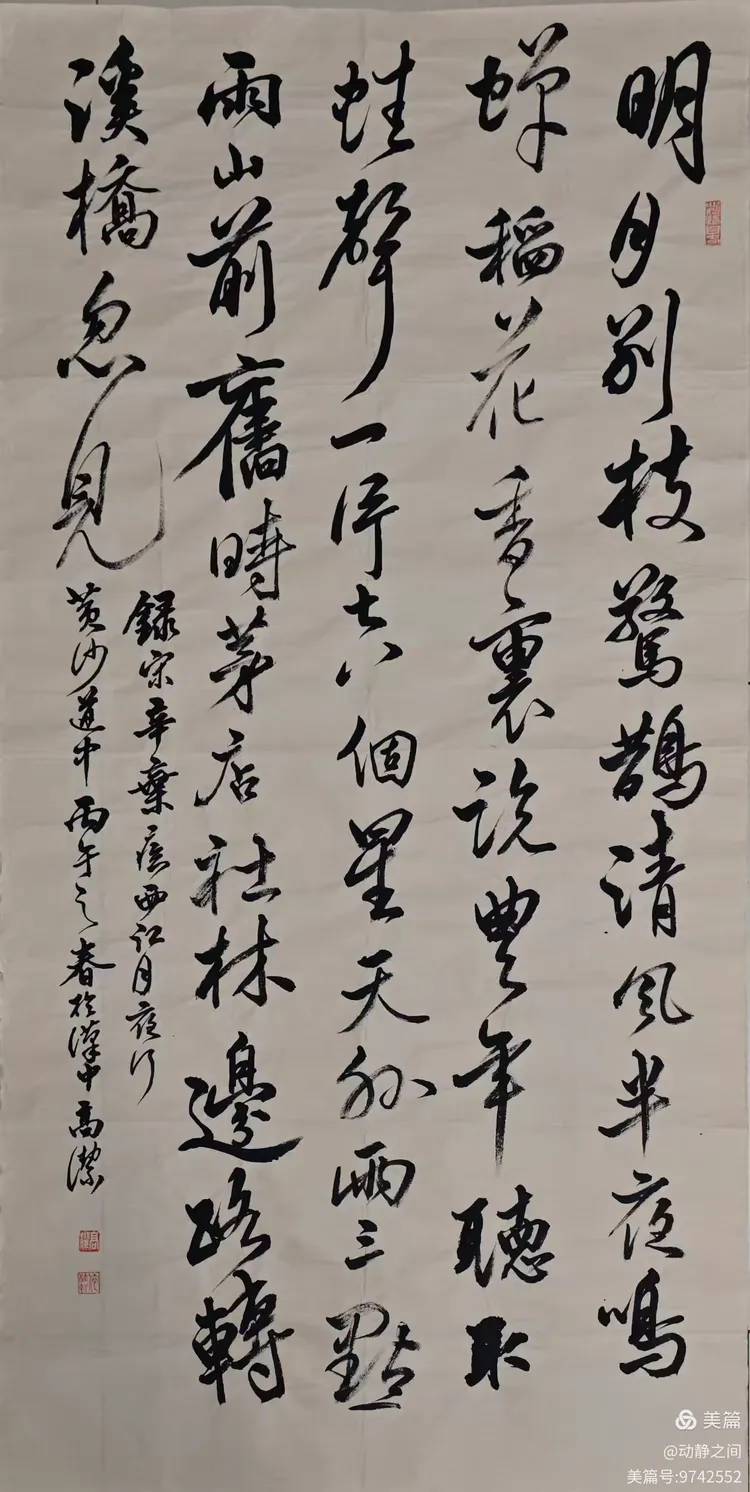 明月别枝驚鵲清風半夜鳴
蟬稻花香裏説豐年聽取
蛙聲一片七八個星天外兩三點
雨山前舊時茅店社林邊路轉
溪橋忽見
録宋辛棄疾西江月夜行
黄沙道中丙午之春於漢中高潔
美篇
@动静之间
美篇号:9742552